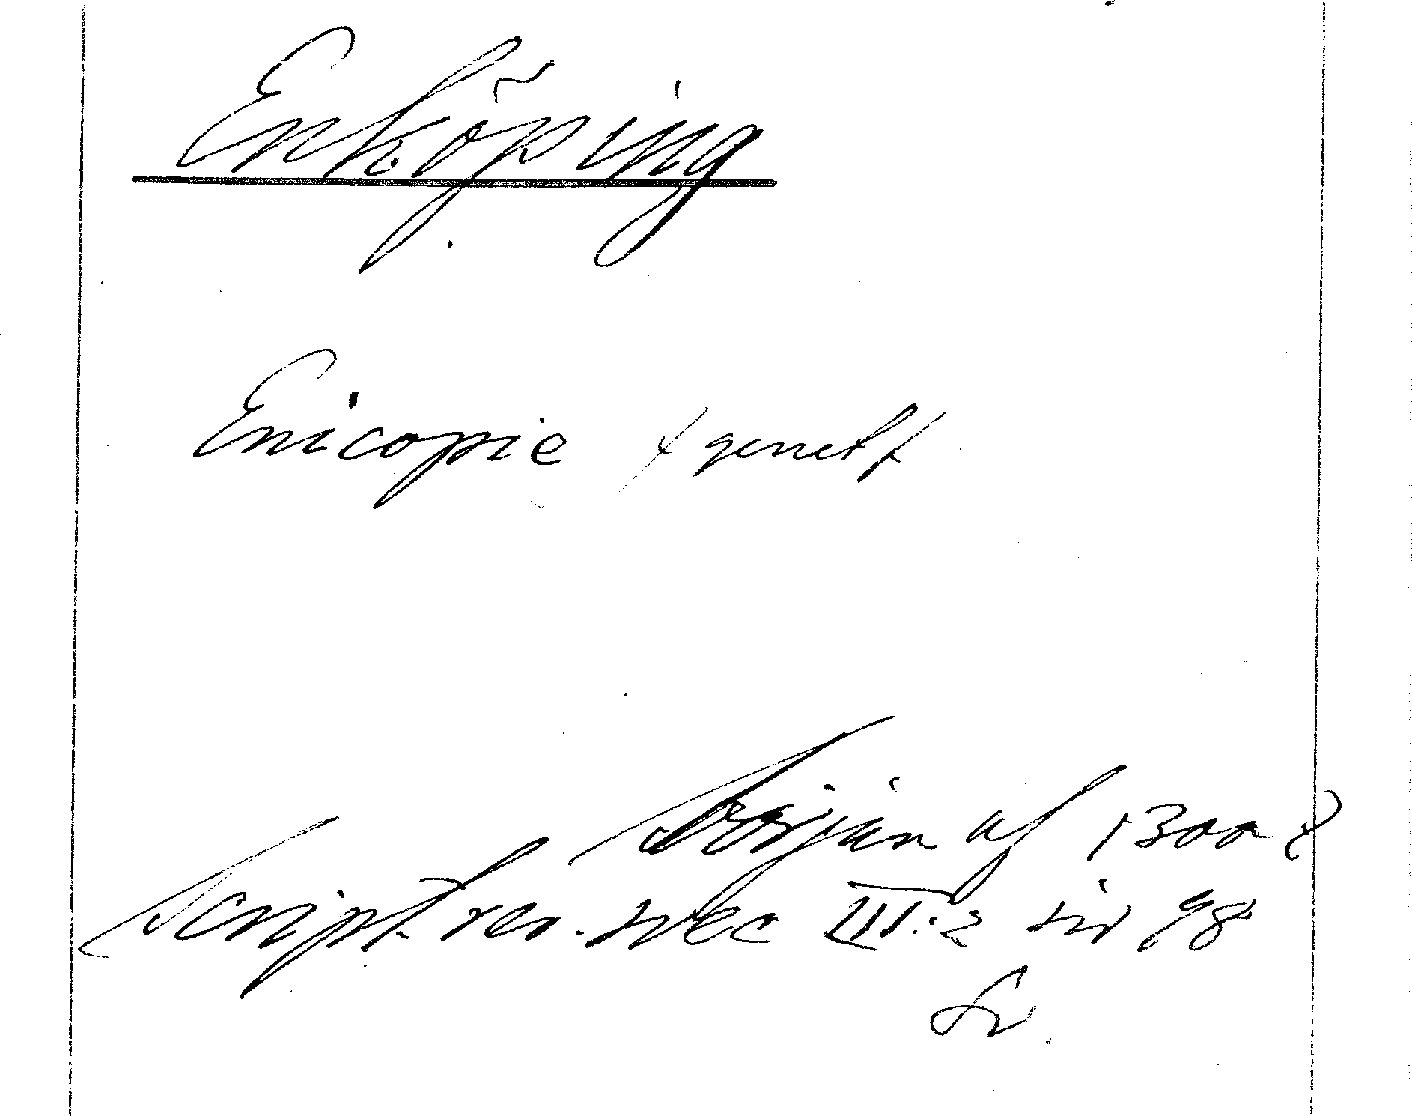 Enköping
Enicopie (genet)
början af 1300 t
Script. rer. svec III:2 sid 98
Or.